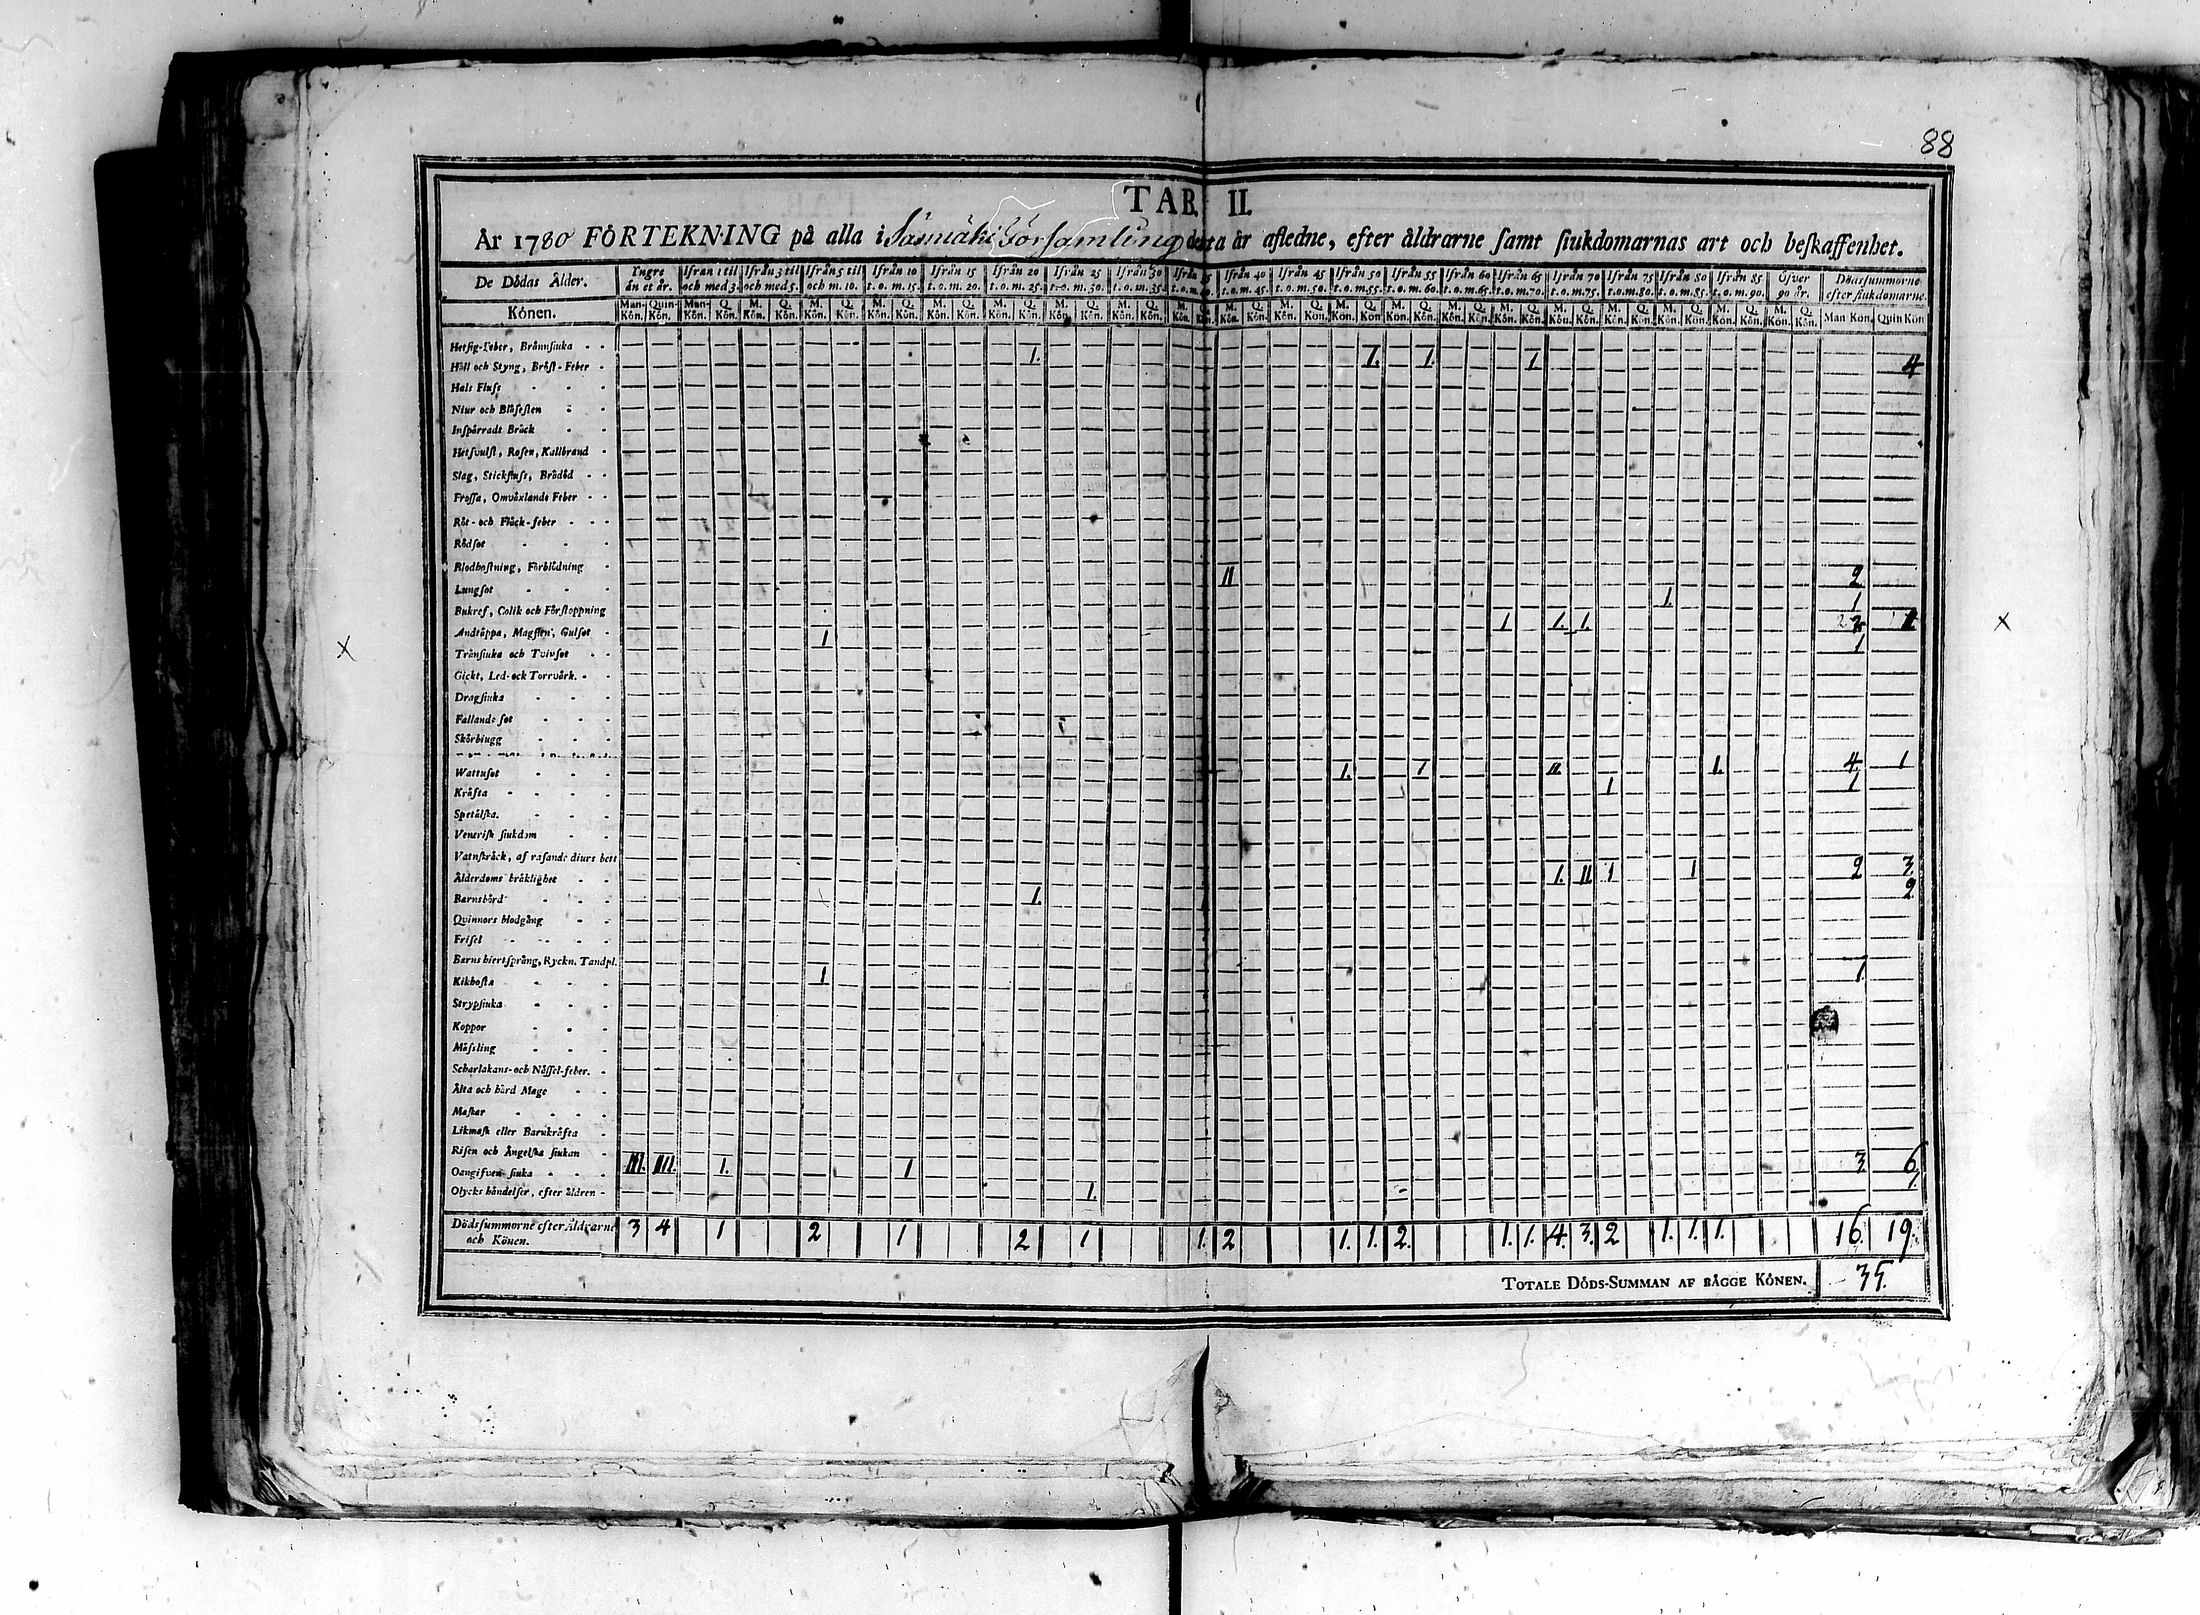 88
TAB. II.
År 1780 FÖRTEKNING på alla i Församling detta år afledne, efter åldrarne samt siukdomarnas art och beskaffenhet.
De Dödas Ålder. Yngre än et år. Ifrån 1 til och med 3. Ifrån 3 til och med 5. Ifrån 5 til och m. 10. Ifrån 10 t. o. m. 15. Ifrån 15 t. o. m. 20. Ifrån 20 t. o. m. 25. Ifrån 25 t. o. m. 30. Ifrån 30 t. o. m. 35. Ifrån 35 t. o. m. 40. Ifrån 40 t. o. m. 45. Ifrån 45 t. o. m. 50. Ifrån 50 t. o. m. 55. Ifrån 55 t. o. m. 60. Ifrån 60 t. o. m. 65. Ifrån 65 t. o. m. 70. Ifrån 70 t. o. m. 75. Ifrån 75 t. o. m. 80. Ifrån 80 t. o. m. 85. Ifrån 85 t. o. m. 90. Öfver 90 år. Dödssummorne efter siukdomarne.
Könen. Man-Kön. Quin-Kön. Man-Kön. Q. Kön. M. Kön. Q. Kön. M. Kön. Q. Kön. M. Kön. Q. Kön. M. Kön. Q. Kön. M. Kön. Q. Kön. M. Kön. Q. Kön. M. Kön. Q. Kön. M. Kön. Q. Kön. M. Kön. Q. Kön. M. Kön. Q. Kön. M. Kön. Q. Kön. M. Kön. Q. Kön. M. Kön. Q. Kön. M. Kön. Q. Kön. M. Kön. Q. Kön. M. Kön. Q. Kön. M. Kön. Q. Kön. M. Kön. Q. Kön. M. Kön. Q. Kön. Man Kön. Quin Kön
Hetsig-feber, Brännsiuka
Håll och Styng, Bröst-Feber 1. 1. 1. 1. 4
Hals Fluss
Niur och Blåsesten
Inspärradt Bråck
Hetsvulst, Rosen, Kallbrand
Slag, Stickfluss, Brådöd
Frossa, Omväxlande Feber
Röt- och Fläck-feber
Rödsot
Blodhostning, Förblödning
Lungsot II 2
Bukref, Colik och Förstoppning 1. 1
Andtäppa, Magsten, Gulsot 1 1. 1. 2
Trånsiuka och Tvinsot 1 1
Gickt, Led- och Torrvärk.
Dragsiuka
Fallande sot
Skörbiugg
Wattusot 1. 1 II. 1. 4. 1
Kräfta 1 1
Spetälska.
Venerisk siukdom
Vatnskräck, af rasande diurs bett
Ålderdoms bräklighet 1. II 1 1 2 3.
Barnsbörd 1. 2
Quinnors blodgång
Frisel
Barns hiertsprång, Ryckn. Tandpl.
Kikhosta 1 1
Strypsiuka
Koppor
Mässling
Scharlakans- och Nässel-feber.
Älta och hård Mage
Maskar
Likmask eller Barnkräfta
Risen och Ängelska siukan
Oangifven siuka III. IIII. 1. 1 3 6
Olycks händelser, efter äldren 1. 1
Dödssummorne efter Åldrarne och Könen. 3 4 1 2 1 2 1 1. 2 1. 1. 2. 1. 1. 4. 3. 2 1. 1. 1. 16. 19.
TOTALE DÖDS-SUMMAN AF BÄGGE KÖNEN. 35.